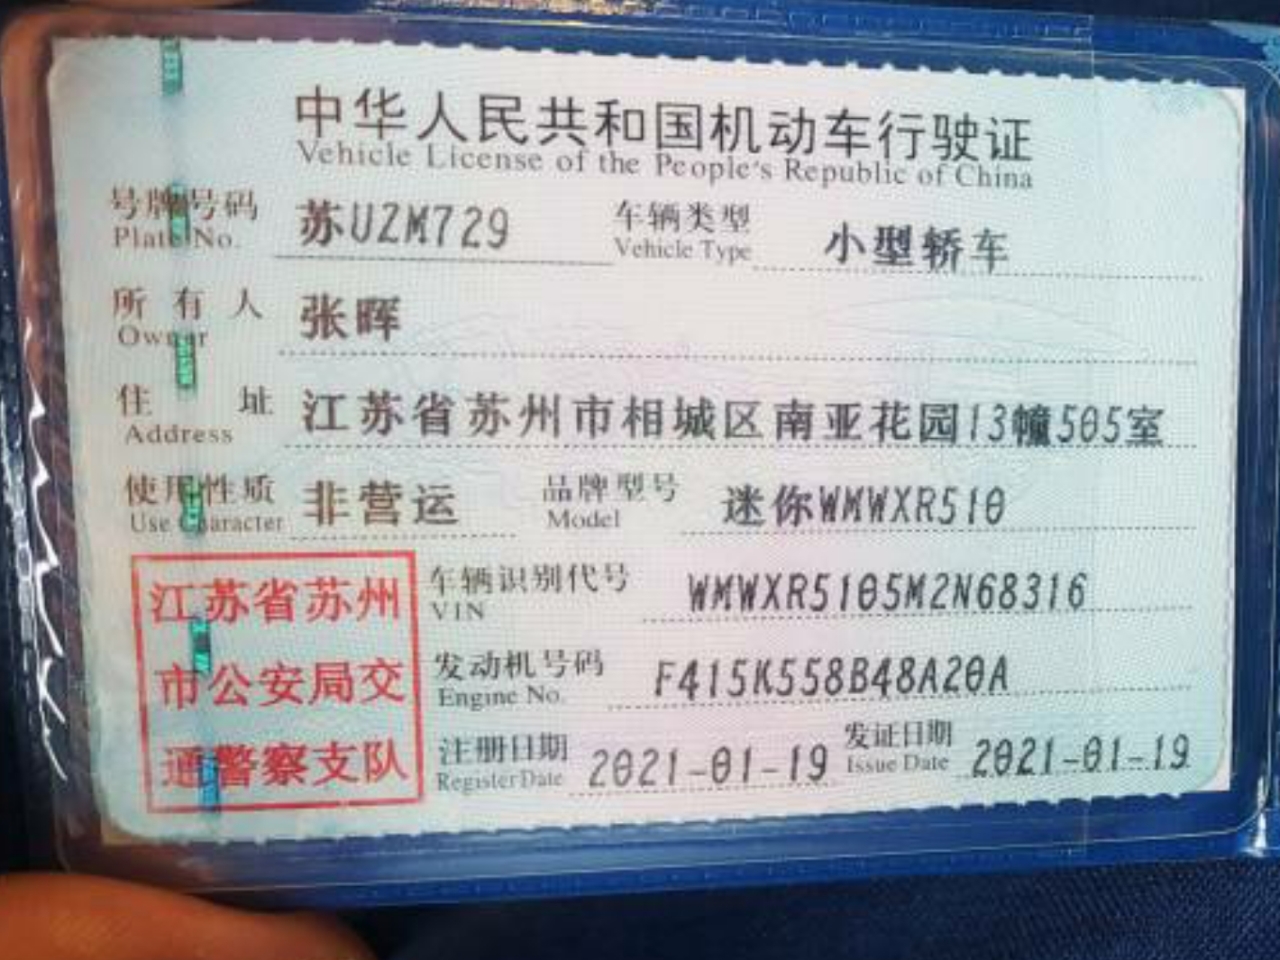 中华人民共和国机动车行驶证
Vehicle License of the People's Republic of China
号牌号码 苏UZM729 车辆类型 小型轿车
Plate No. Vehicle Type
所有人 张晖
Owner
住址 江苏省苏州市相城区南亚花园13幢505室
Address
使用性质 非营运 品牌型号 迷你WMWXR510
Use Character Model
江苏省苏州
市公安局交
通警察支队
车辆识别代号 WMWXR5105M2N68316
VIN
发动机号码 F415K558B48A20A
Engine No.
注册日期 2021-01-19 发证日期 2021-01-19
Register Date Issue Date